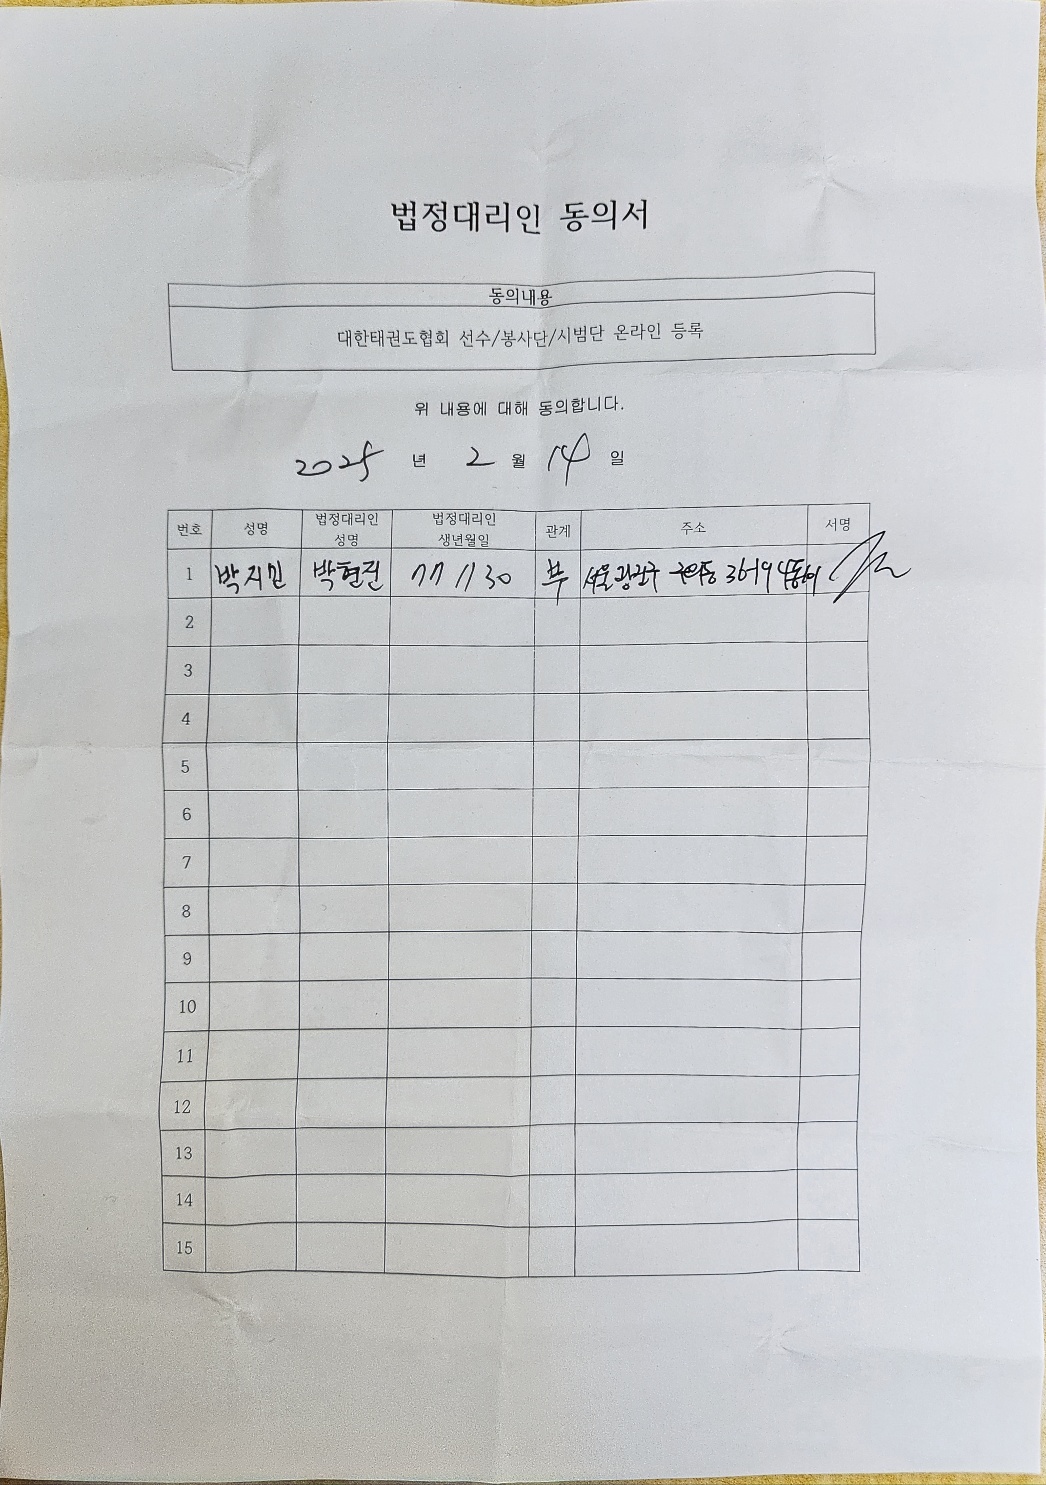 법정대리인 동의서
동의내용
대한태권도협회 선수/봉사단/시범단 온라인 등록
위 내용에 대해 동의합니다.
2025 년 2 월 14 일
번호 성명 법정대리인 성명 법정대리인 생년월일 관계 주소 서명
1 박지민 박현진 77 11 30 부 서울 광진구 구의동 36-19
2
3
4
5
6
7
8
9
10
11
12
13
14
15